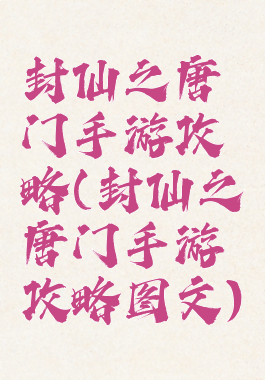 封仙之唐
门手游攻
略(封仙之
唐门手游
攻略图文)